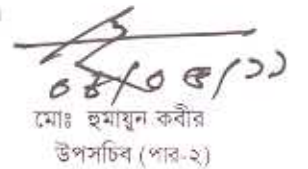 ০৪/০৫/১১
মোঃ হুমায়ূন কবীর
উপসচিব (পার-২)